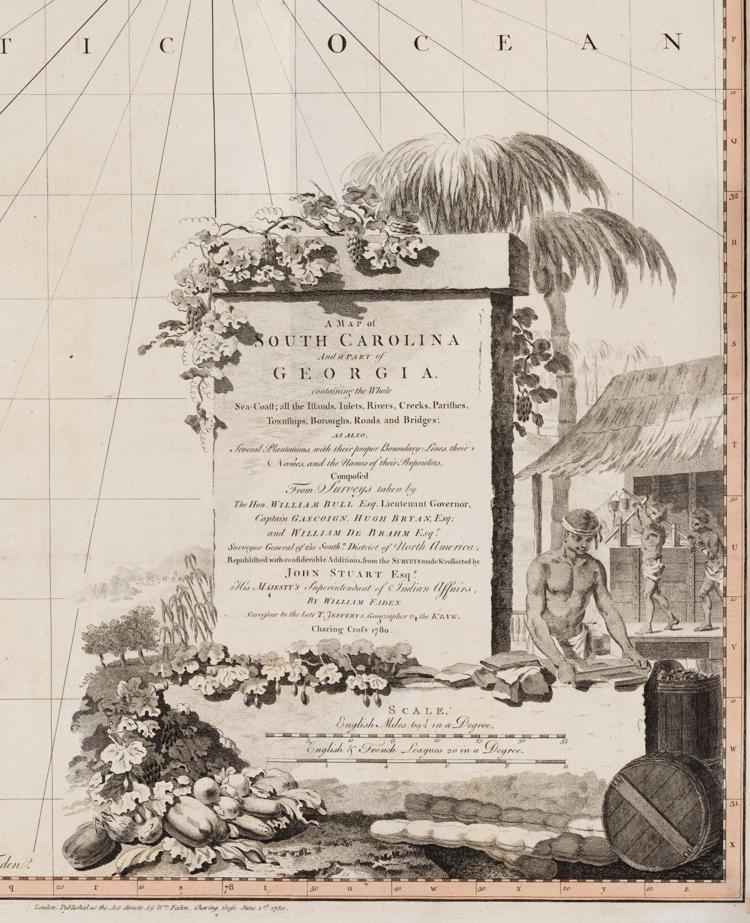 T I C OCEAN
A MAP of
SOUTH CAROLINA
And a PART of
GEORGIA.
containing the Whole
Sea-Coaſt; all the Iſlands, Inlets, Rivers, Creeks, Pariſhes,
Townſhips, Boroughs, Roads, and Bridges:
AS ALSO,
Several Plantations, with their proper Boundary-Lines, their
Names, and the Names of their Proprietors.
Compoſed
From Surveys taken by
The Hon. WILLIAM BULL Esq. Lieutenant Governor,
Captain GASCOIGN, HUGH BRYAN, Esq;
and WILLIAM DE BRAHM Esqr.
Surveyor General of the Southn. District of North America,
Republiſhed with conſiderable Additions, from the SURVEYS made & collected by
JOHN STUART Esqr.
His MAJESTY'S Superintendant of Indian Affairs,
BY WILLIAM FADEN
Succeſsor to the late T. JEFFERYS, Geographer to the KING.
Charing Croſs 1780.
SCALE.
English Miles 69½ in a Degree.
English & French Leagues 20 in a Degree.
P
Q
R
S
T
U
V
W
X
32
31
q 20 r 10 s 78 t 50 u 40 w 30 x 20 y 10 z
London. Published as the Act directs, by Wm. Faden, Charing Croſs, June 1st. 1780.